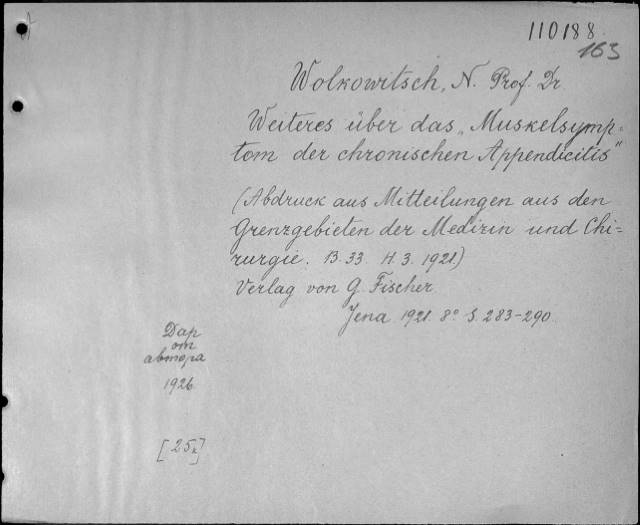 110188
163
Wolkowitsch, N. Prof. Dr
Weiteres über das „Muskelsymp-
tom der chronischen Appendicitis"
(Abdruck aus Mitteilungen aus den
Grenzgebieten der Medizin und Chi-
rurgie. B. 33. H. 3. 1921.)
Verlag von G. Fischer.
Jena. 1921. 8° S. 283-290
Дар
от
автора
1926